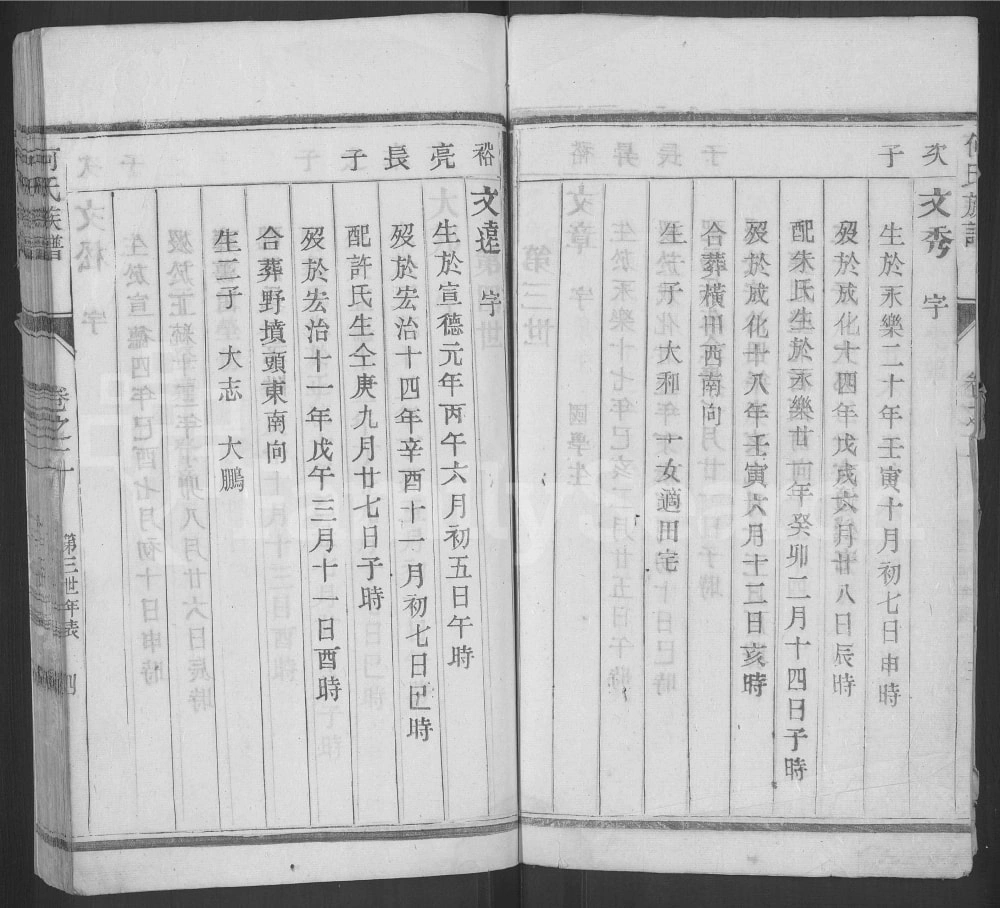 次子
文秀 字
生於永樂二十年壬寅十月初七日申時
歿於成化十四年戊戌六月廿八日辰時
配朱氏生於永樂廿一年癸卯二月十四日子時
歿於成化十八年壬寅六月十三日亥時
合葬橫田西南向
生子大和 一女適田宅
裕亮長子
文遠 字
生於宣德元年丙午六月初五日午時
歿於宏治十四年辛酉十一月初七日巳時
配許氏生仝庚九月廿七日子時
歿於宏治十一年戊午三月十一日酉時
合葬野墳頭東南向
生二子 大志 大鵬
何氏族譜
卷之一
第三世年表
四